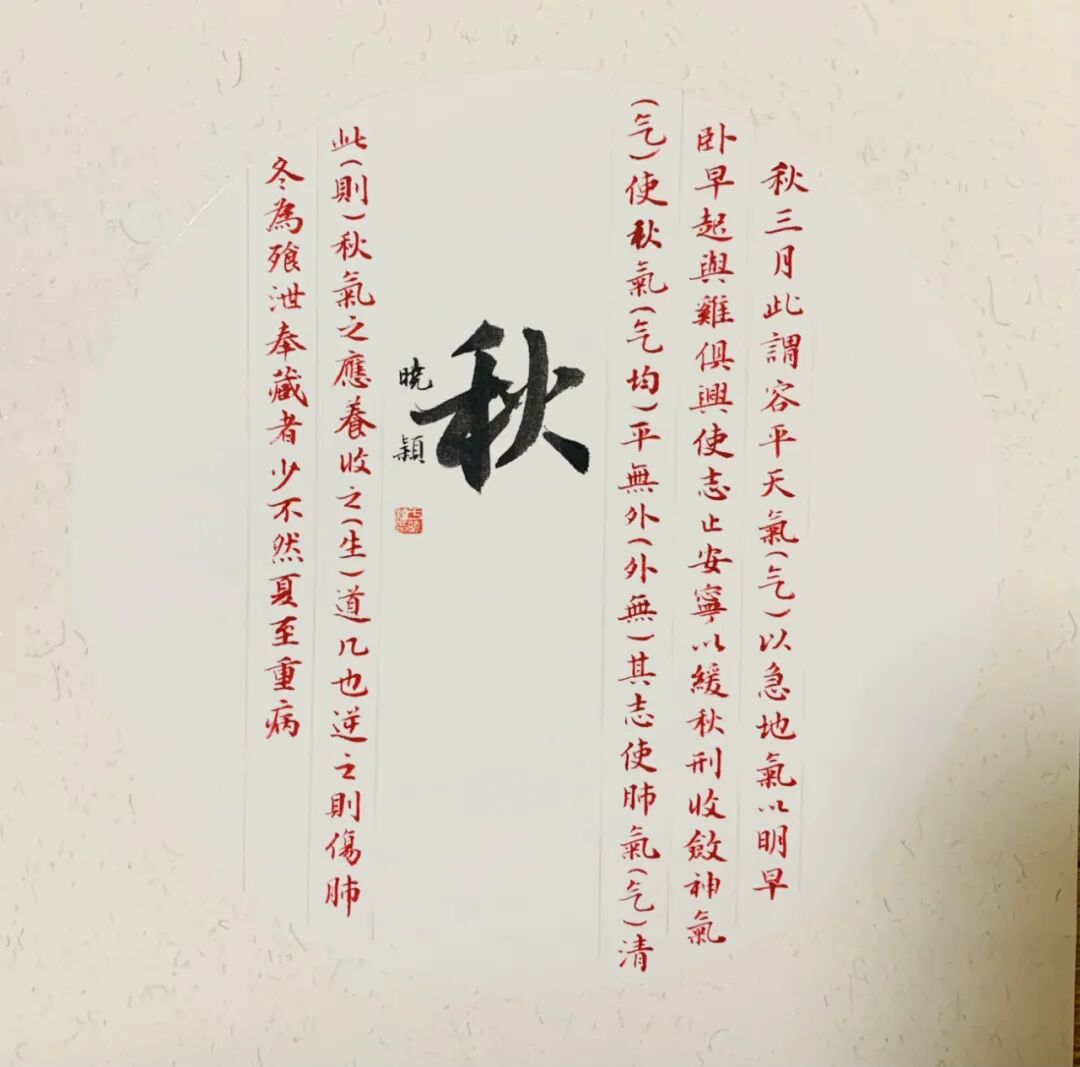 秋三月此謂容平天氣(气)以急地氣以明早
卧早起與雞俱興使志止安寧以緩秋刑收斂神氣
(气)使秋氣(气均)平無外(外無)其志使肺氣(气)清
秋
曉穎
此(則)秋氣之應養收之(生)道几也逆之則傷肺
冬為飱泄奉藏者少不然夏至重病